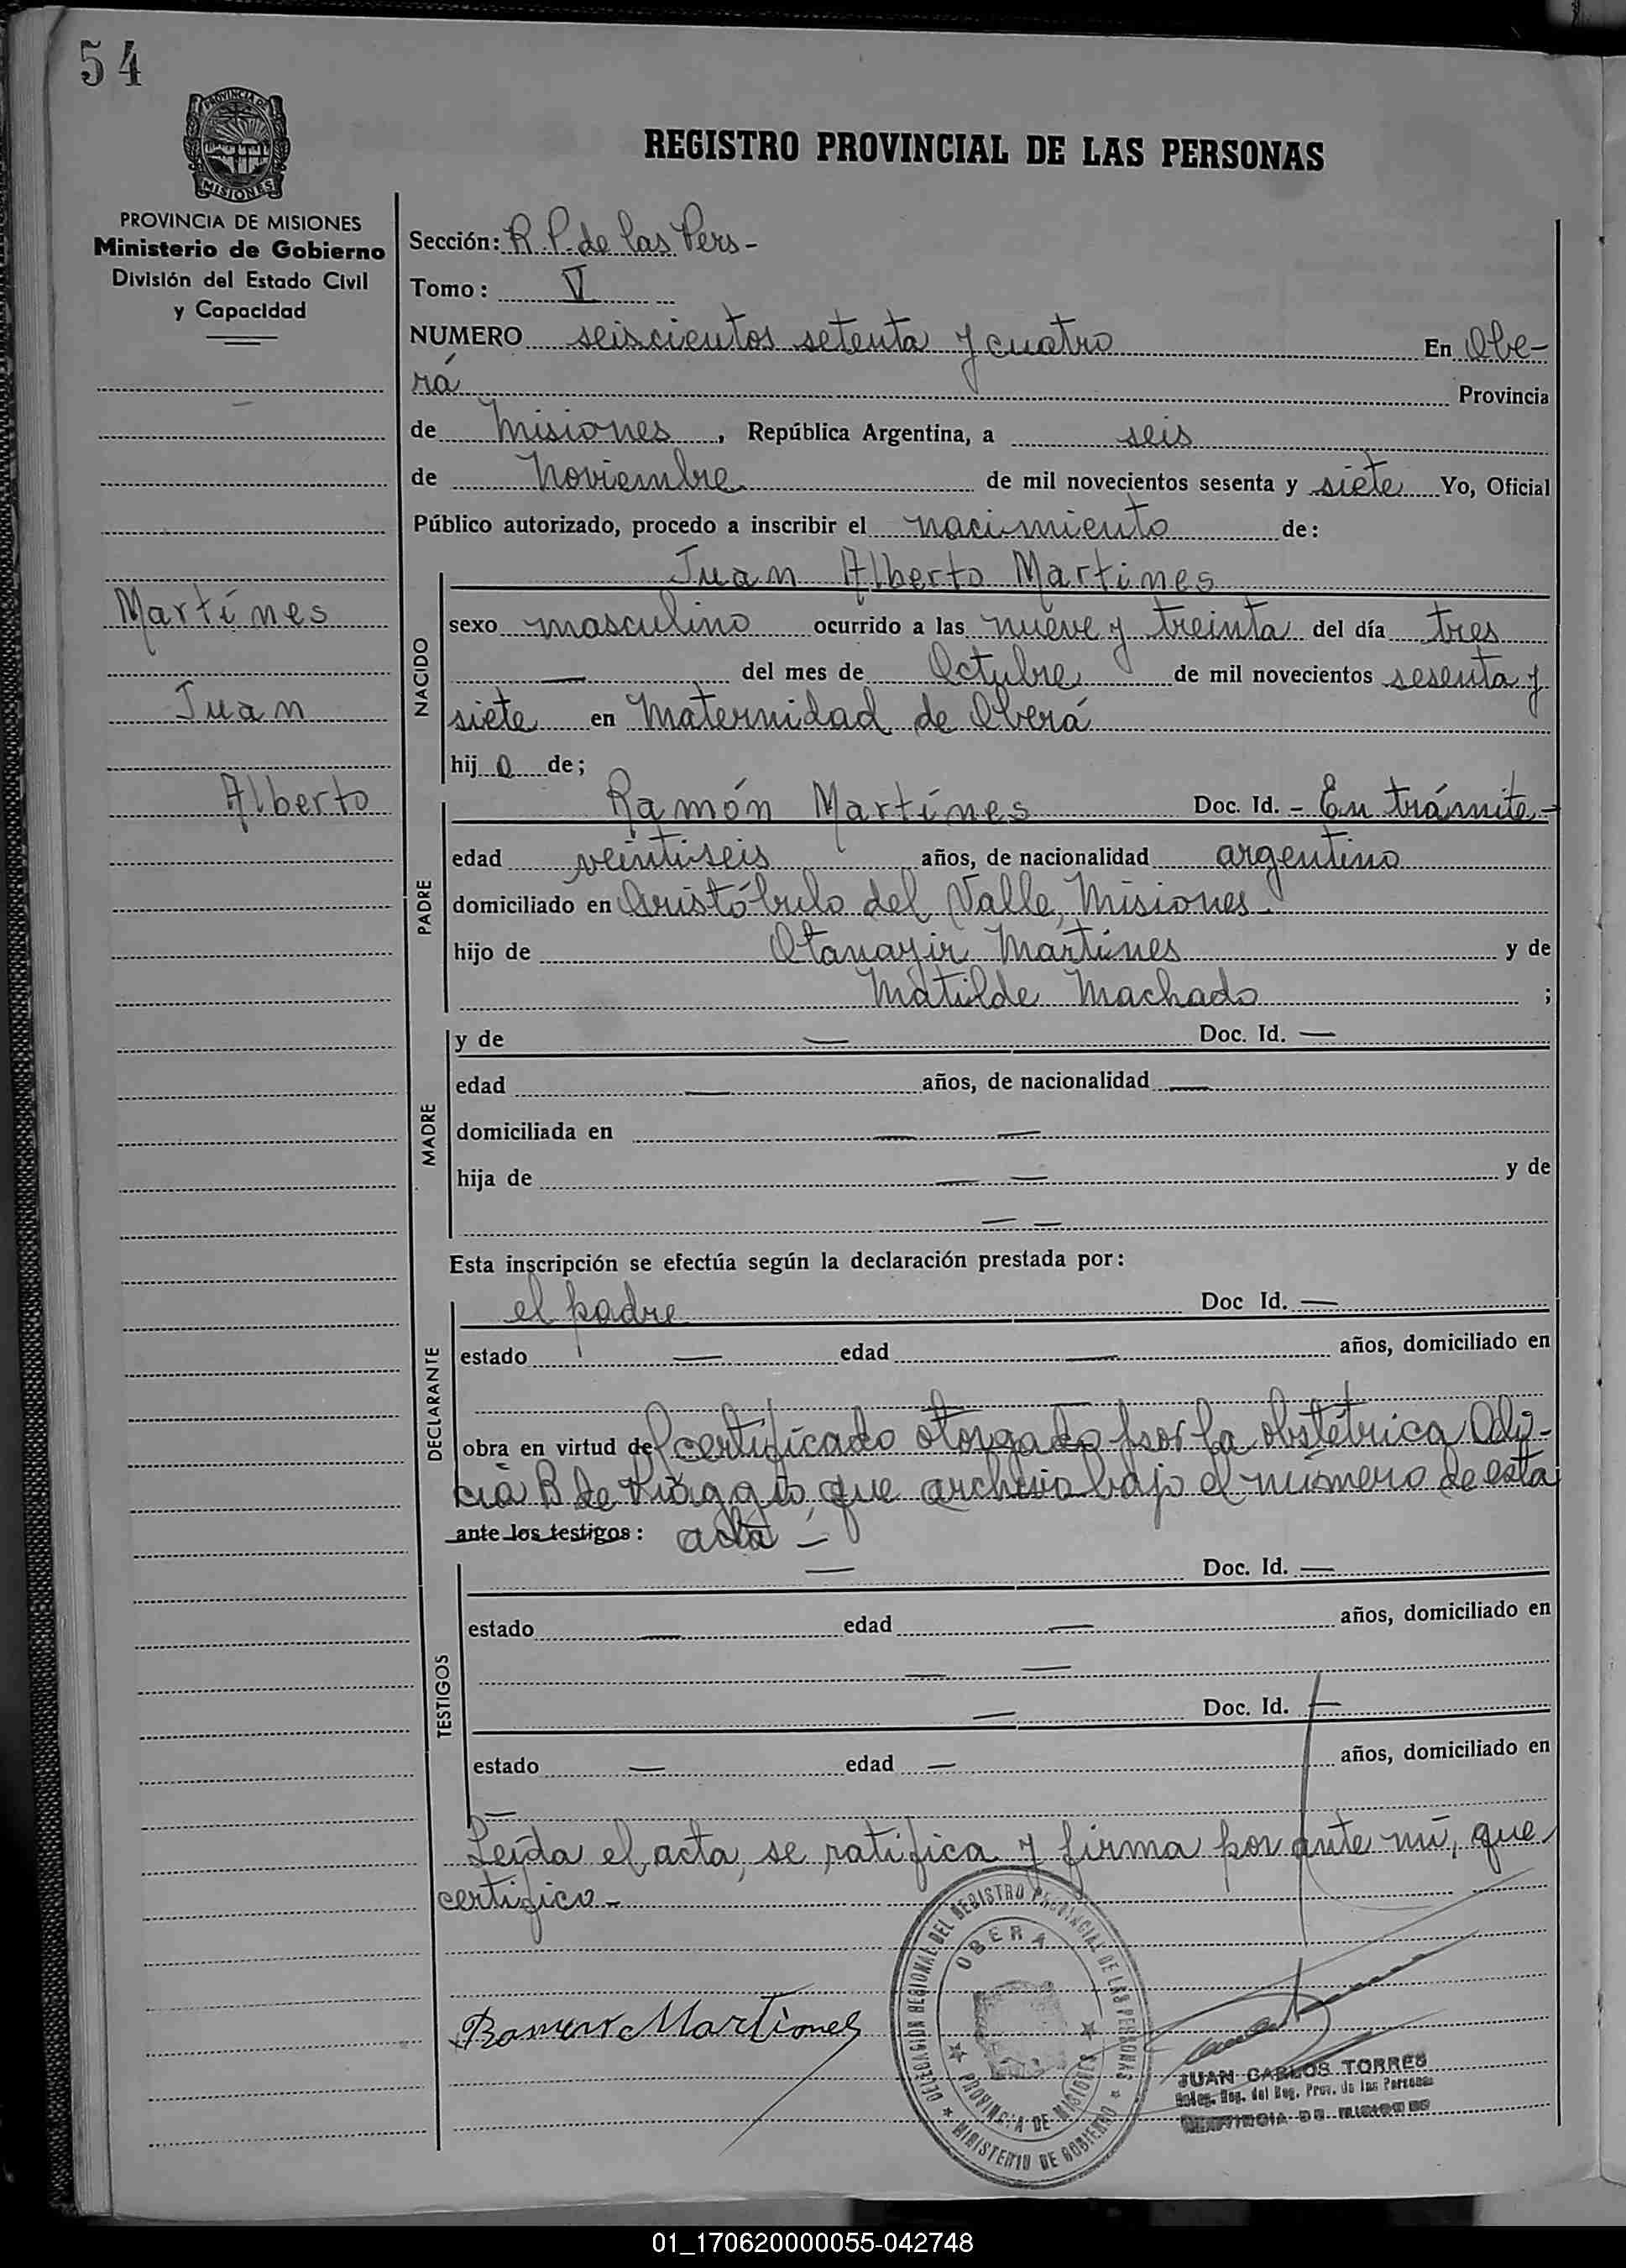 54
PROVINCIA DE
MISIONES
REGISTRO PROVINCIAL DE LAS PERSONAS
PROVINCIA DE MISIONES
Ministerio de Gobierno
División del Estado Civil
y Capacidad
Martínes
Juan
Alberto
Sección: R. P. de las Pers -
Tomo: VI
NUMERO seiscientos setenta y cuatro En Obe-
rá Provincia
de Misiones, República Argentina, a seis
de Noviembre de mil novecientos sesenta y siete Yo, Oficial
Público autorizado, procedo a inscribir el nacimiento de:
NACIDO
Juan Alberto Martines
sexo masculino ocurrido a las nueve y treinta del día tres
— del mes de Octubre de mil novecientos sesenta y
siete en Maternidad de Oberá
hij o de;
PADRE
Ramón Martínes Doc. Id. - En trámite -
edad veintiseis años, de nacionalidad argentino
domiciliado en Aristóbulo del Valle, Misiones.
hijo de Martínes y de
Matilde Machado ;
MADRE
y de — Doc. Id. —
edad — años, de nacionalidad —
domiciliada en — —
hija de — — y de
— —
Esta inscripción se efectúa según la declaración prestada por:
DECLARANTE
el padre Doc Id. —
estado — edad — años, domiciliado en
— —
obra en virtud del certificado otorgado por la obstétrica
B de que archivo bajo el número de esta
ante los testigos: acta —
TESTIGOS
— Doc. Id. —
estado — edad — años, domiciliado en
— —
— Doc. Id. —
estado — edad — años, domiciliado en
—
Leída el acta, se ratifica y firma por ante mí, que
certifico -
Ramon Martines
DELEGACION REGIONAL DEL REGISTRO PROVINCIAL DE LAS PERSONAS * MINISTERIO DE GOBIERNO *
OBERA
PROVINCIA DE MISIONES
JUAN CARLOS TORRES
Deleg. Reg. del Reg. Prov. de las Personas
PROVINCIA DE MISIONES
01_170620000055-042748